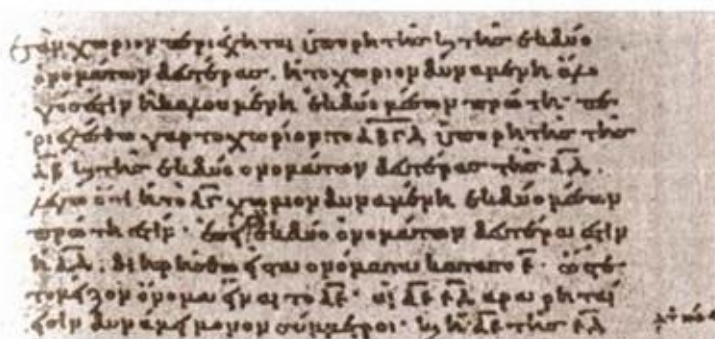 ἐὰν χωρίον περιέχηται ὑπὸ ῥητῆς καὶ τῆς ἐκ δύο
ὀνομάτων δευτέρας, ἡ τὸ χωρίον δυναμένη ἄλο
γός ἐστιν ἡ καλουμένη ἐκ δύο μέσων πρώτη· πε
ριεχέσθω γὰρ τὸ χωρίον τὸ ΑΒΓΔ ὑπὸ ῥητῆς τῆς
ΑΒ καὶ τῆς ἐκ δύο ὀνομάτων δευτέρας τῆς ΑΔ.
λέγω ὅτι ἡ τὸ ΑΓ χωρίον δυναμένη ἐκ δύο μέσων
πρώτη ἐστίν· ἐπεὶ γὰρ ἐκ δύο ὀνομάτων δευτέρα ἐστὶν
ἡ ΑΔ, διῃρήσθω εἰς τὰ ὀνόματα κατὰ τὸ Ε· ὥστε
τὸ μεῖζον ὄνομα εἶναι τὸ ΑΕ· αἱ ΑΕ ΕΔ ἄρα ῥηταί
εἰσιν δυνάμει μόνον σύμμετροι· καὶ ἡ ΑΕ τῆς ΕΔ